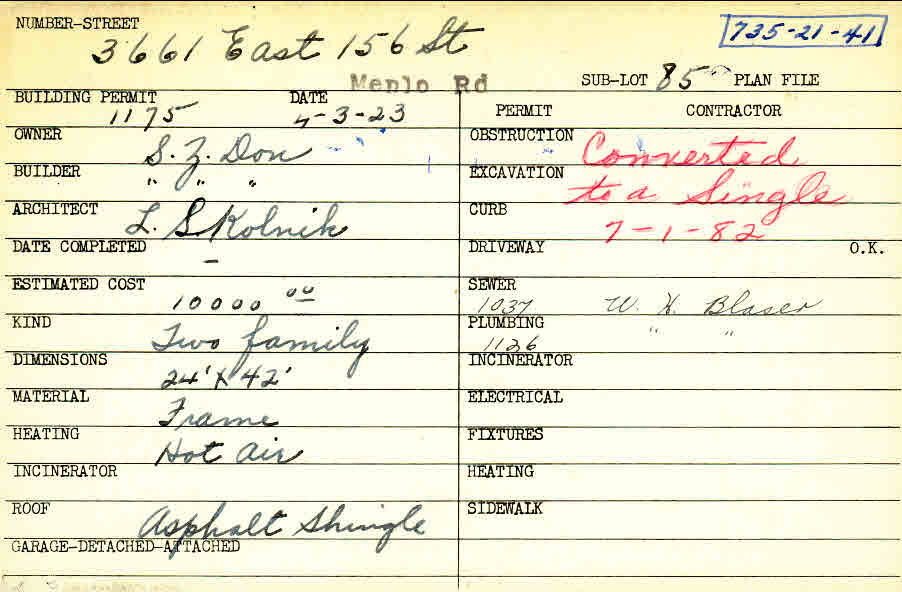 NUMBER-STREET
3661 East 156 St
735-21-41
Menlo Rd
SUB-LOT 85 PLAN FILE
BUILDING PERMIT 1175
DATE 4-3-23
PERMIT CONTRACTOR
OWNER S. Z. Don
BUILDER " " "
ARCHITECT L. Skolnik
DATE COMPLETED -
ESTIMATED COST 10000 00
KIND Two family
DIMENSIONS 24' X 42'
MATERIAL Frame
HEATING Hot Air
INCINERATOR
ROOF Asphalt Shingle
GARAGE-DETACHED-ATTACHED
OBSTRUCTION
Converted
EXCAVATION
to a Single
CURB
7-1-82
DRIVEWAY O.K.
SEWER
1037 W. H. Blaser
PLUMBING " "
1126
INCINERATOR
ELECTRICAL
FIXTURES
HEATING
SIDEWALK